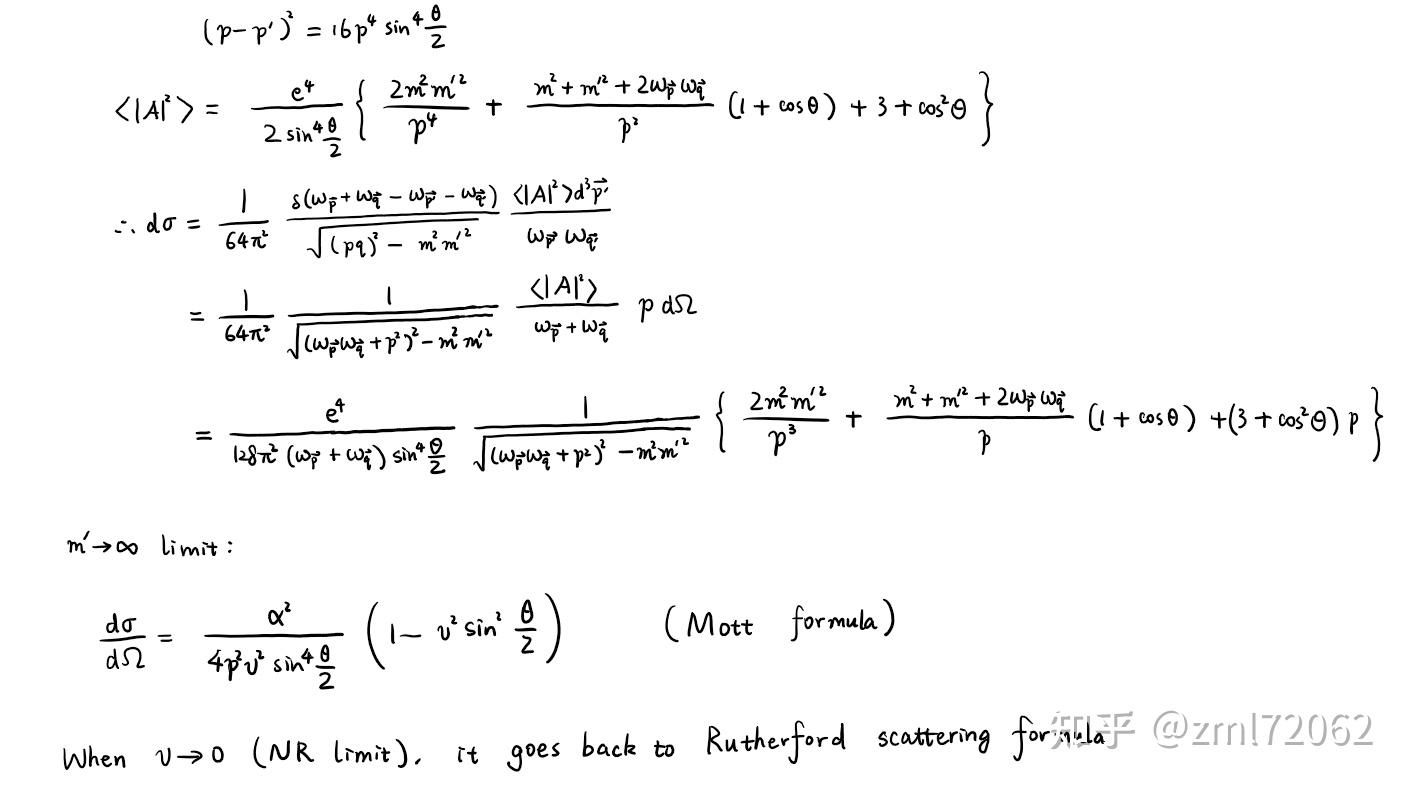 (p-p')² = 16p⁴ sin⁴ θ/2
<|A|²> = e⁴/(2 sin⁴ θ/2) { 2m²m'²/p⁴ + (m² + m'² + 2ω_p⃗ ω_q⃗)/p² (1 + cosθ) + 3 + cos²θ }
∴ dσ = 1/(64π²) δ(ω_p⃗ + ω_q⃗ - ω_p⃗' - ω_q⃗')/√((pq)² - m²m'²) <|A|²> d³p⃗'/(ω_p⃗' ω_q⃗')
= 1/(64π²) 1/√((ω_p⃗ ω_q⃗ + p²)² - m²m'²) <|A|²>/(ω_p⃗ + ω_q⃗) p dΩ
= e⁴/(128π² (ω_p⃗ + ω_q⃗) sin⁴ θ/2) 1/√((ω_p⃗ ω_q⃗ + p²)² - m²m'²) { 2m²m'²/p³ + (m² + m'² + 2ω_p⃗ ω_q⃗)/p (1 + cosθ) + (3 + cos²θ) p }
m' → ∞ limit:
dσ/dΩ = α²/(4p²v² sin⁴ θ/2) (1 - v² sin² θ/2) (Mott formula)
When v → 0 (NR limit), it goes back to Rutherford scattering formula
知乎 @zml72062